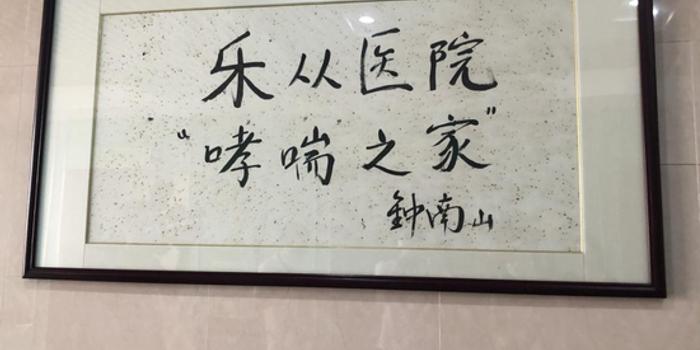 乐从医院
“哮喘之家”
鈡南山